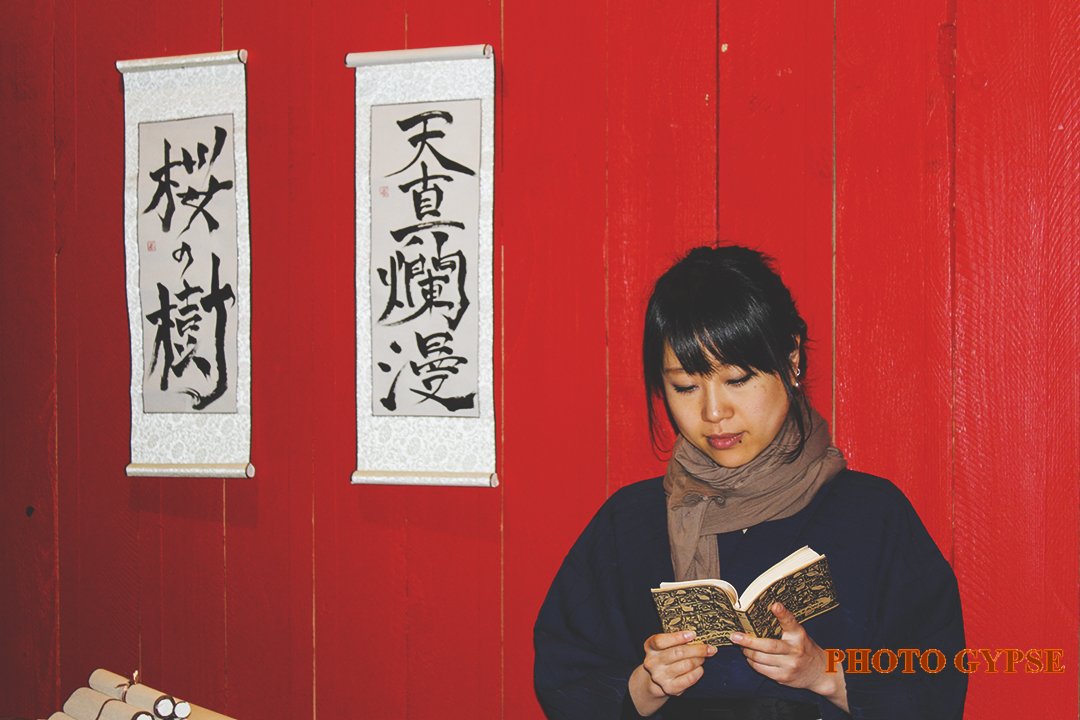 桜の樹
天真爛漫
PHOTO GYPSE